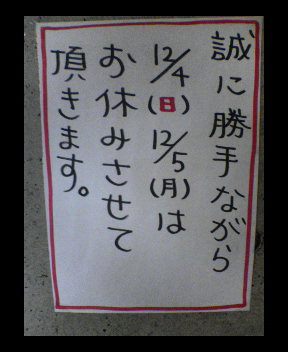 誠に勝手ながら
12/4(日)12/5(月)は
お休みさせて
頂きます。